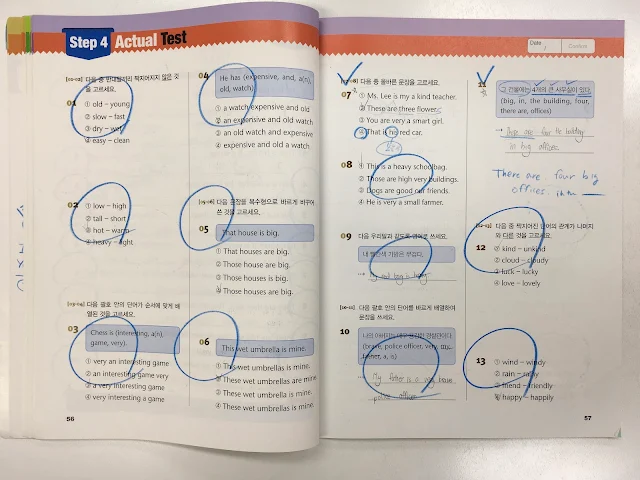 Step 4 Actual Test
[01~02] 다음 중 반대말끼리 짝지어지지 않은 것
을 고르세요.
01
① old – young
② slow – fast
③ dry – wet
④ easy – clean
02
① low – high
② tall – short
③ hot – warm
④ heavy – light
[03~04] 다음 괄호 안의 단어가 순서에 맞게 배
열된 것을 고르세요.
03
Chess is (interesting, a(n),
game, very).
① very an interesting game
② an interesting game very
③ a very interesting game
④ very interesting a game
56
04
He has (expensive, and, a(n),
old, watch).
① a watch expensive and old
② an expensive and old watch
③ an old watch expensive and
④ expensive and old a watch
[05~06] 다음 문장을 복수형으로 바르게 바꾸어
쓴 것을 고르세요.
05
That house is big.
① That houses are big.
② Those house are big.
③ Those houses is big.
④ Those houses are big.
06
This wet umbrella is mine.
① This wet umbrellas is mine.
② These wet umbrellas are mine.
③ These wet umbrellas is mine.
④ These wet umbrella is mine.
Date
/
Confirm
[07~08] 다음 중 올바른 문장을 고르세요.
07
① Ms. Lee is my a kind teacher.
② These are three flower.
③ You are very a smart girl.
④ That is his red car.
08
① This is a heavy schoolbag.
② Those are high very buildings.
③ Dogs are good our friends.
④ He is very a small farmer.
09
다음 우리말과 같도록 영어로 쓰세요.
내 빨간색 가방은 무겁다.
My red bag is heavy.
[10~11] 다음 괄호 안의 단어를 바르게 배열하여
문장을 쓰세요.
10
나의 아버지는 매우 용감한 경찰관이다.
(brave, police officer, very, my,
father, a, is)
My father is a very brave
police officer
11
그 건물에는 4개의 큰 사무실이 있다.
(big, in, the building, four,
there, are, offices)
There are four the building
in big offices.
There are four big
offices in the
[12~13] 다음 중 짝지어진 단어의 관계가 나머지
와 다른 것을 고르세요.
12
① kind – unkind
② cloud – cloudy
③ luck – lucky
④ love – lovely
13
① wind – windy
② rain – rainy
③ friend – friendly
④ happy – happily
57